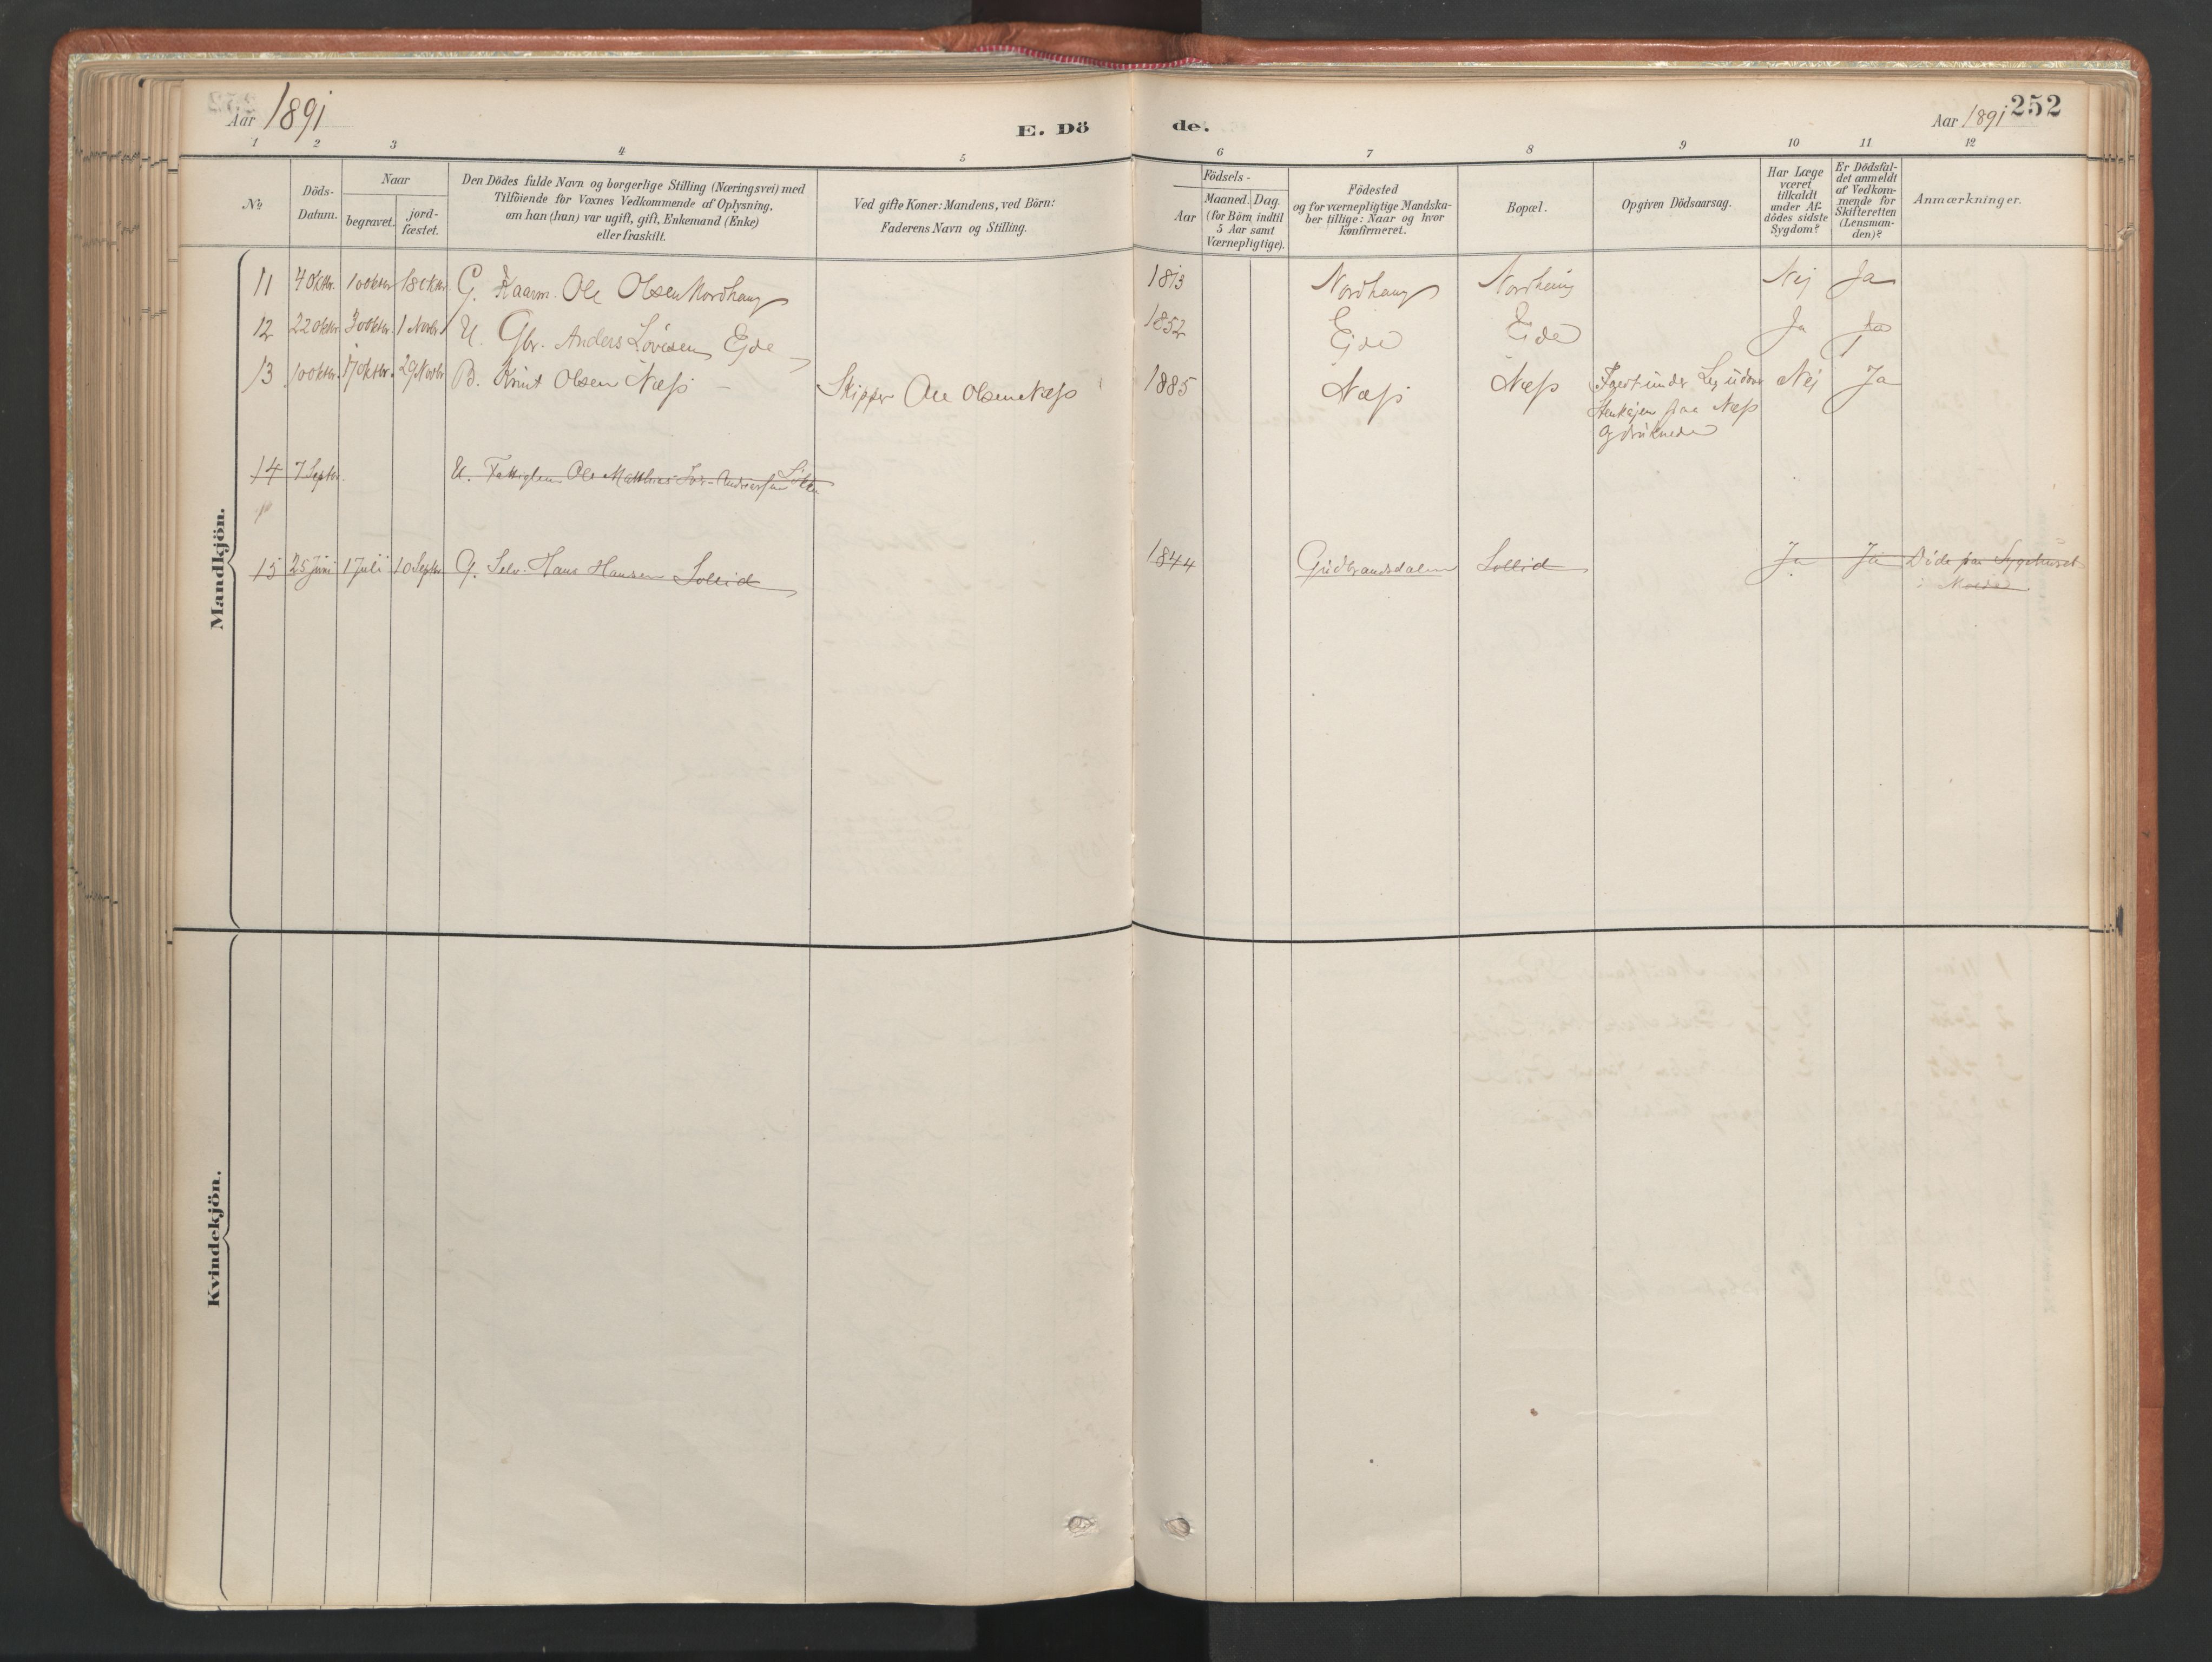 Aar 1891
E. Döde.
Aar 1891 252
1 2 3 4 5 6 7 8 9 10 11 12
No.
Döds-
Datum.
Naar
begravet.
jord-
fæstet.
Den Dödes fulde Navn og borgerlige Stilling (Næringsvei) med
Tilföiende for Voxnes Vedkommende af Oplysning,
om han (hun) var ugift, gift, Enkemand (Enke)
eller fraskilt.
Ved gifte Koner: Mandens, ved Börn:
Faderens Navn og Stilling.
Födsels-
Aar
Maaned. Dag.
(for Börn indtil
5 Aar samt
Værnepligtige).
Födested
og for værnepligtige Mandska-
ber tillige: Naar og hvor
konfirmeret.
Bopæl.
Opgiven Dödsaarsag.
Har Læge
været
tilkaldt
under Af-
dödes sidste
Sygdom?
Er Dödsfal-
det anmeldt
af Vedkom-
mende for
Skifteretten
(Lensman-
den)?
Anmærkninger.
Mandkjön.
11 4 Oktbr. 10 Oktbr 18 Oktbr G. Kaarm. Ole Olsen Nordhaug 1813 Nordhaug Nordhaug Nej Ja
12 22 Oktbr 30 Oktbr. 1 Novbr U. Gbr. Anders Lovisen Ejde 1852 Ejde Eide Ja Ja
13 10 Oktbr. 17 Oktbr. 29 Novbr B. Knut Olsen Næss Skipper Ole Olsen Næss 1885 Næss Næss under Leg Nej Ja
fra Næss
og druknede
14 7 Septbr. U. Ole Matthias
15 25 Juni 1 Juli 10 Septbr G. Selv. Hans Hansen Sollid 1844 Gudbrandsdalen Sollid Ja Ja Döde paa Sygehuset
i Molde
Kvindekjön.